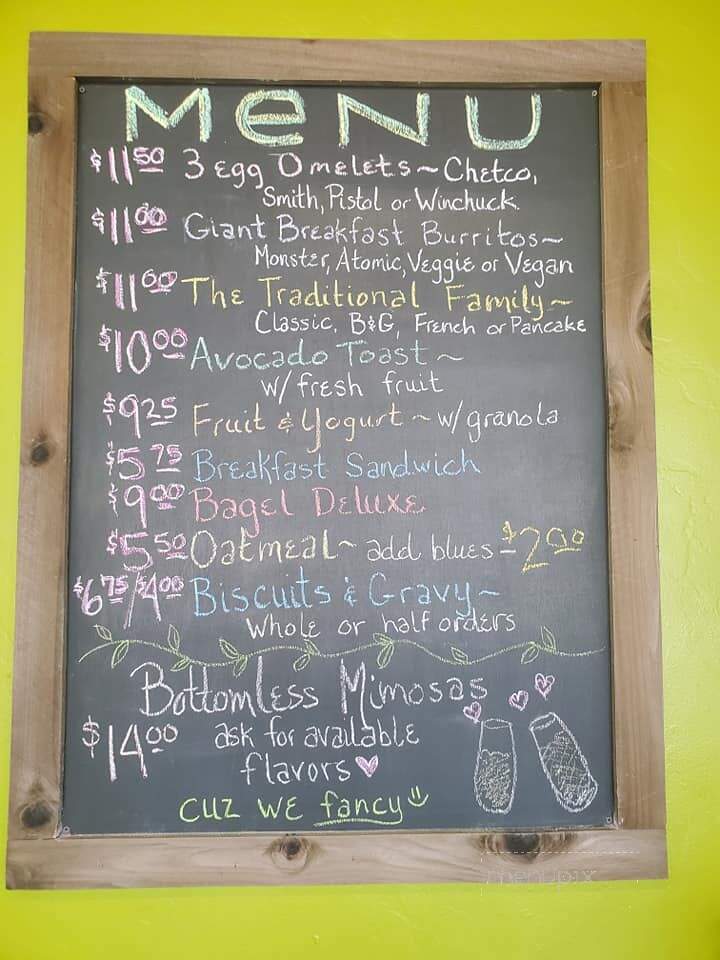 MENU
$11.50 3 egg Omelets ~ Chetco,
Smith, Pistol or Winchuck
$11.00 Giant Breakfast Burritos ~
Monster, Atomic, Veggie or Vegan
$11.00 The Traditional Family ~
Classic, B&G, French or Pancake
$10.00 Avocado Toast ~
w/ fresh fruit
$9.25 Fruit & Yogurt ~ w/ granola
$5.75 Breakfast Sandwich
$9.00 Bagel Deluxe
$5.50 Oatmeal ~ add blues - $2.00
$6.75/$4.00 Biscuits & Gravy ~
Whole or half orders
Bottomless Mimosas
$14.00 ask for available
flavors
cuz we fancy
menupix